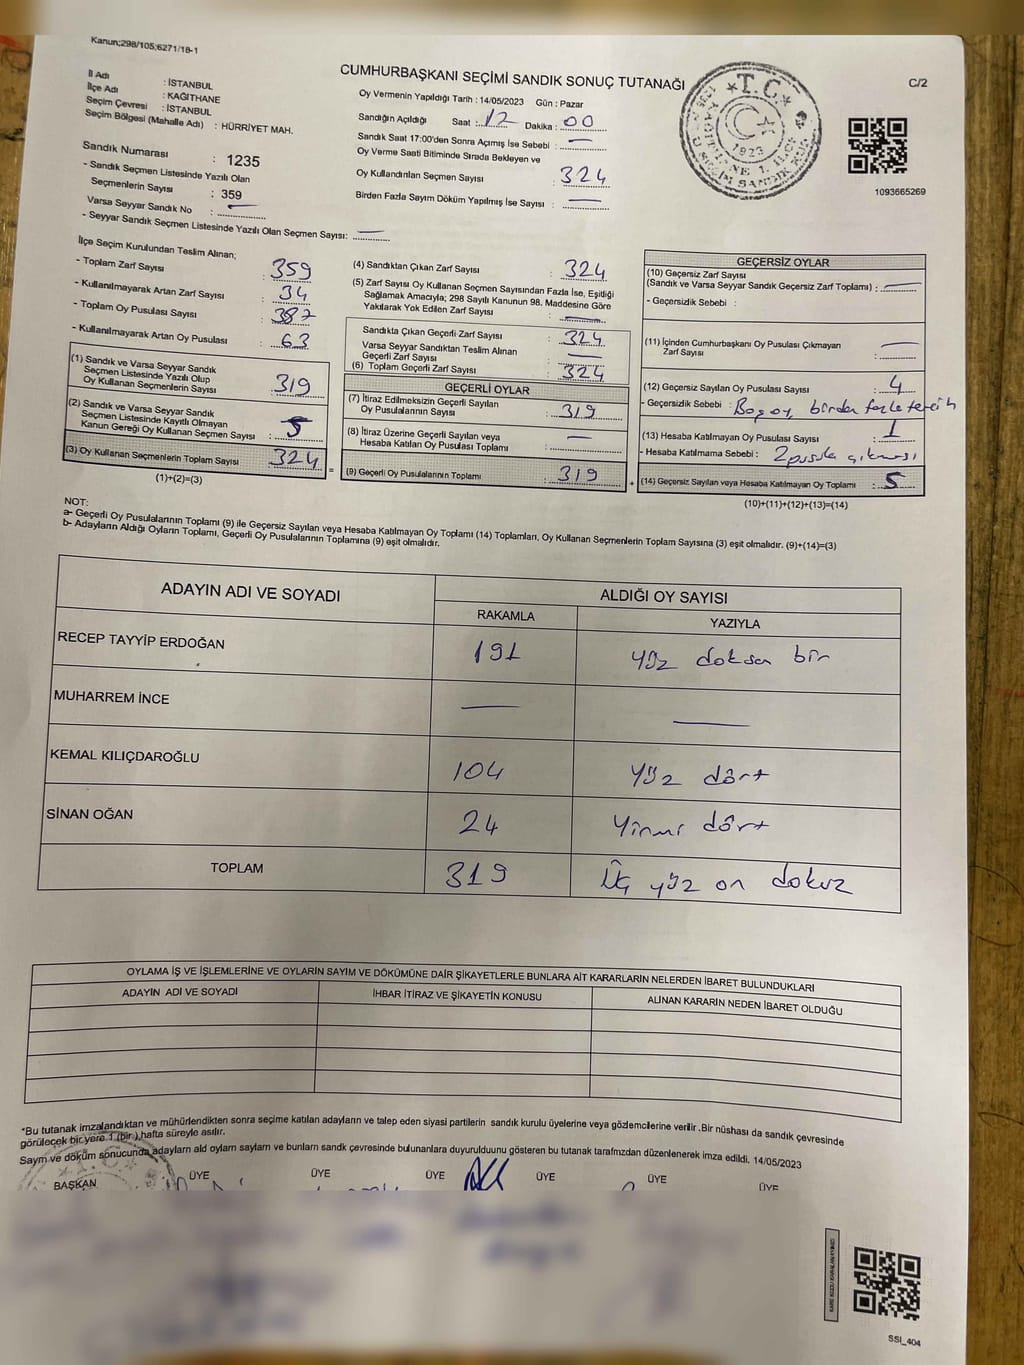 Kanun;298/105;6271/18-1
İl Adı : İSTANBUL
İlçe Adı : KAĞITHANE
Seçim Çevresi : İSTANBUL
Seçim Bölgesi (Mahalle Adı) : HÜRRİYET MAH.
Sandık Numarası : 1235
- Sandık Seçmen Listesinde Yazılı Olan
Seçmenlerin Sayısı : 359
Varsa Seyyar Sandık No : —
- Seyyar Sandık Seçmen Listesinde Yazılı Olan Seçmen Sayısı: —
CUMHURBAŞKANI SEÇİMİ SANDIK SONUÇ TUTANAĞI
Oy Vermenin Yapıldığı Tarih : 14/05/2023 Gün : Pazar
Sandığın Açıldığı Saat : 12 Dakika : 00
Sandık Saat 17:00'den Sonra Açılmış İse Sebebi : —
Oy Verme Saati Bitiminde Sırada Bekleyen ve
Oy Kullandırılan Seçmen Sayısı : 324
Birden Fazla Sayım Döküm Yapılmış İse Sayısı : —
T.C.
1923
C/2
1093665269
İlçe Seçim Kurulundan Teslim Alınan;
- Toplam Zarf Sayısı : 359
- Kullanılmayarak Artan Zarf Sayısı : 34
- Toplam Oy Pusulası Sayısı : 387
- Kullanılmayarak Artan Oy Pusulası : 63
(1) Sandık ve Varsa Seyyar Sandık
Seçmen Listesinde Yazılı Olup
Oy Kullanan Seçmenlerin Sayısı : 319
(2) Sandık ve Varsa Seyyar Sandık
Seçmen Listesinde Kayıtlı Olmayan
Kanun Gereği Oy Kullanan Seçmen Sayısı : 5
(3) Oy Kullanan Seçmenlerin Toplam Sayısı : 324
(1)+(2)=(3)
(4) Sandıktan Çıkan Zarf Sayısı : 324
(5) Zarf Sayısı Oy Kullanan Seçmen Sayısından Fazla İse, Eşitliği
Sağlamak Amacıyla; 298 Sayılı Kanunun 98. Maddesine Göre
Yakılarak Yok Edilen Zarf Sayısı : —
Sandıkta Çıkan Geçerli Zarf Sayısı : 324
Varsa Seyyar Sandıktan Teslim Alınan
Geçerli Zarf Sayısı : —
(6) Toplam Geçerli Zarf Sayısı : 324
=
GEÇERLİ OYLAR
(7) İtiraz Edilmeksizin Geçerli Sayılan
Oy Pusulalarının Sayısı : 319
(8) İtiraz Üzerine Geçerli Sayılan veya
Hesaba Katılan Oy Pusulası Toplamı : —
(9) Geçerli Oy Pusulalarının Toplamı : 319
+
GEÇERSİZ OYLAR
(10) Geçersiz Zarf Sayısı
(Sandık ve Varsa Seyyar Sandık Geçersiz Zarf Toplamı) : —
- Geçersizlik Sebebi :
(11) İçinden Cumhurbaşkanı Oy Pusulası Çıkmayan
Zarf Sayısı : —
(12) Geçersiz Sayılan Oy Pusulası Sayısı : 4
- Geçersizlik Sebebi : Boş oy, birden fazla tercih
(13) Hesaba Katılmayan Oy Pusulası Sayısı : 1
- Hesaba Katılmama Sebebi : 2 pusula çıkması
(14) Geçersiz Sayılan veya Hesaba Katılmayan Oy Toplamı : 5
(10)+(11)+(12)+(13)=(14)
NOT:
a- Geçerli Oy Pusulalarının Toplamı (9) ile Geçersiz Sayılan veya Hesaba Katılmayan Oy Toplamı (14) Toplamları, Oy Kullanan Seçmenlerin Toplam Sayısına (3) eşit olmalıdır. (9)+(14)=(3)
b- Adayların Aldığı Oyların Toplamı, Geçerli Oy Pusulalarının Toplamına (9) eşit olmalıdır.
ADAYIN ADI VE SOYADI
ALDIĞI OY SAYISI
RAKAMLA YAZIYLA
RECEP TAYYİP ERDOĞAN 191 yüz doksan bir
MUHARREM İNCE — —
KEMAL KILIÇDAROĞLU 104 yüz dört
SİNAN OĞAN 24 yirmi dört
TOPLAM 319 Üç yüz on dokuz
OYLAMA İŞ VE İŞLEMLERİNE VE OYLARIN SAYIM VE DÖKÜMÜNE DAİR ŞİKAYETLERLE BUNLARA AİT KARARLARIN NELERDEN İBARET BULUNDUKLARI
ADAYIN ADI VE SOYADI İHBAR İTİRAZ VE ŞİKAYETİN KONUSU ALINAN KARARIN NEDEN İBARET OLDUĞU
*Bu tutanak imzalandıktan ve mühürlendikten sonra seçime katılan adayların ve talep eden siyasi partilerin sandık kurulu üyelerine veya gözlemcilerine verilir .Bir nüshası da sandık çevresinde
görülecek bir yere 1 (bir ) hafta süreyle asılır.
Sayım ve döküm sonucunda adayların ald oyların sayların ve bunların sandk çevresinde bulunanlara duyurulduunu gösteren bu tutanak tarafmzdan düzenlenerek imza edildi. 14/05/2023
BAŞKAN ÜYE ÜYE ÜYE ÜYE ÜYE ÜYE
SSI_404